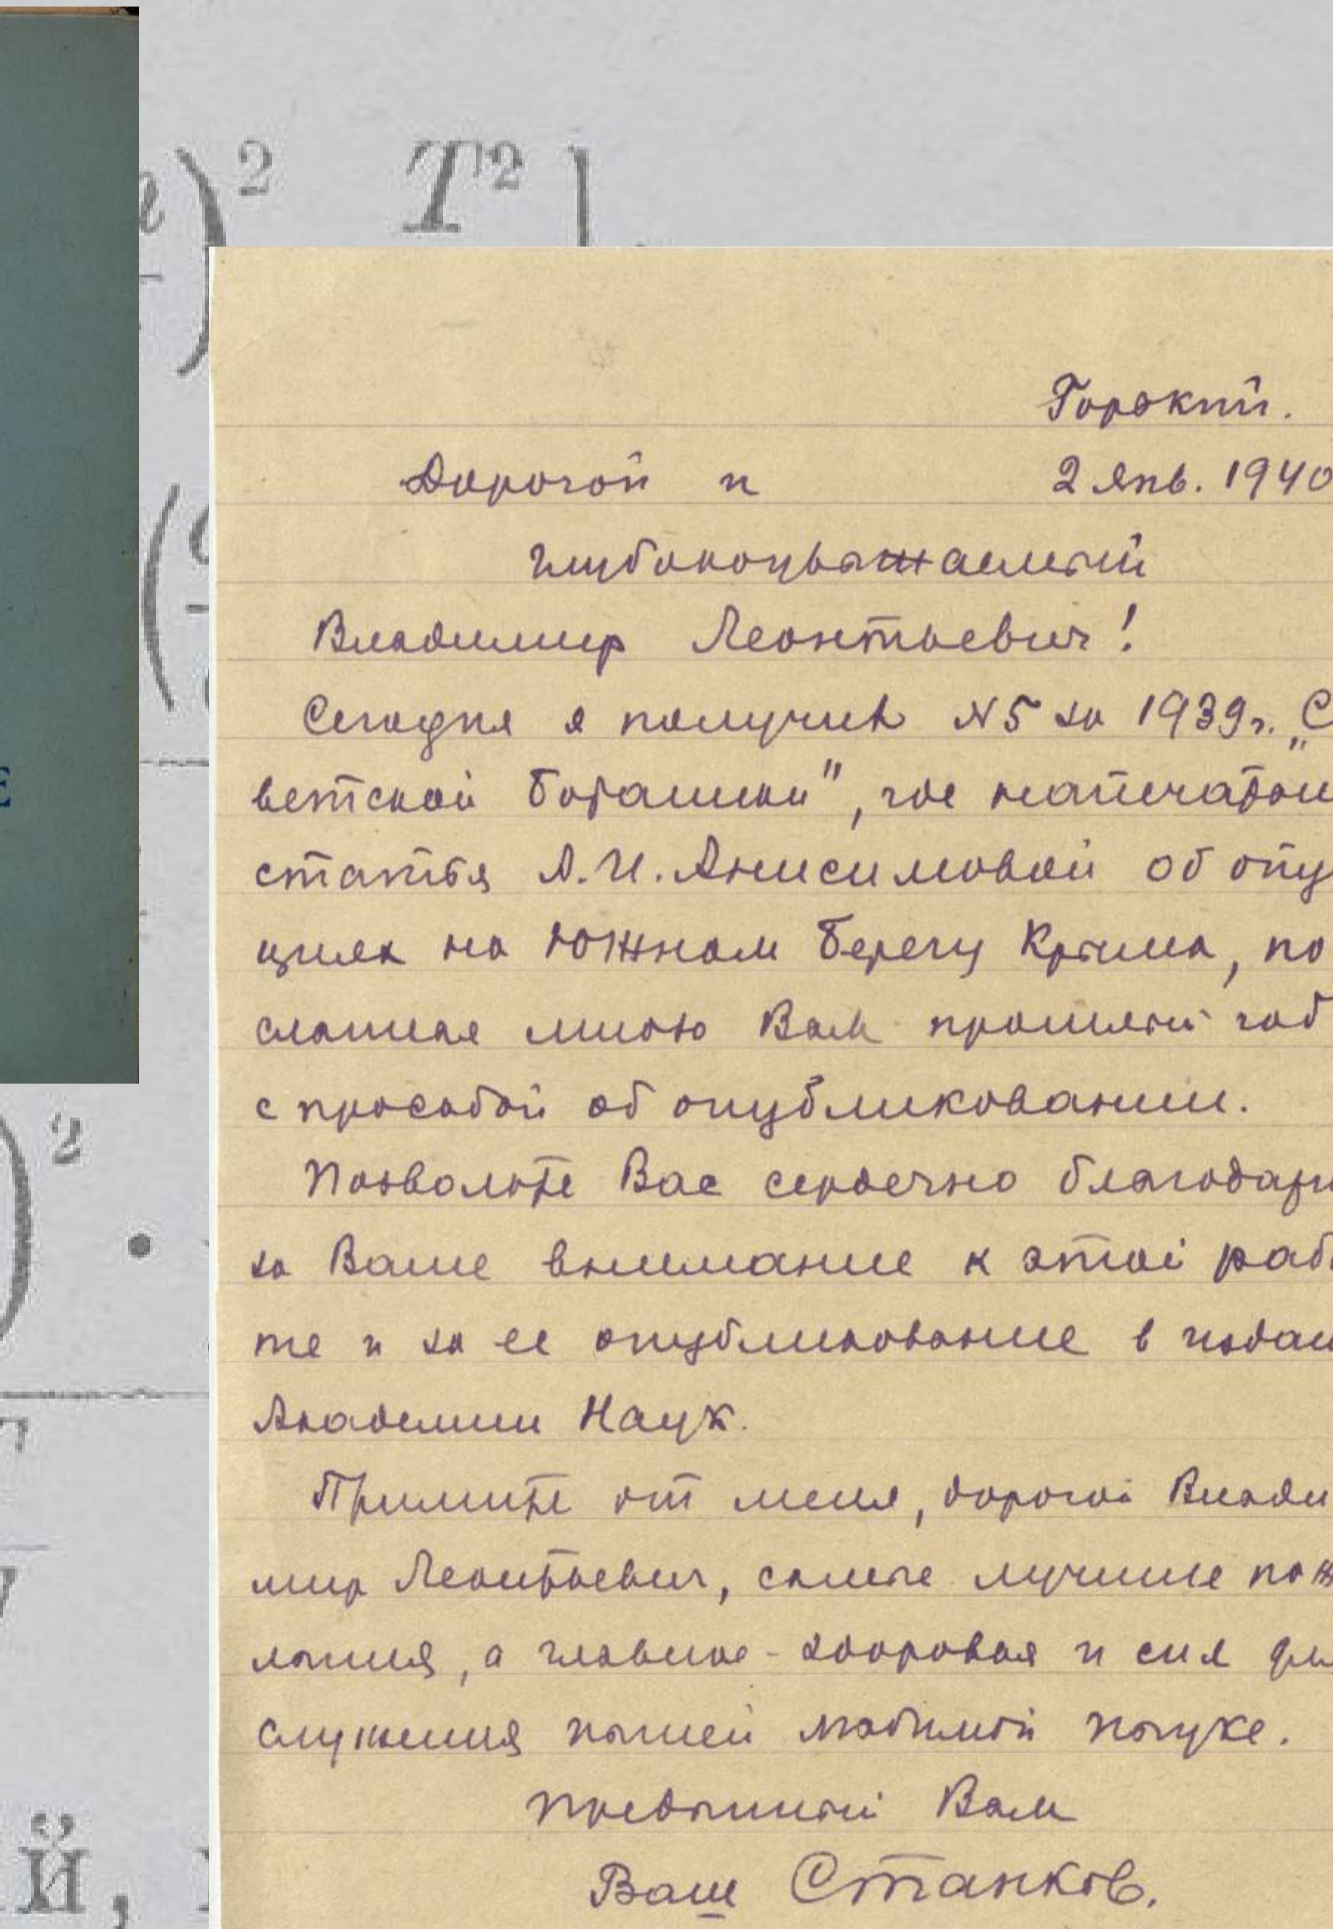 )² T²
Е
Горький.
Дорогой и 2 янв. 1940
глубокоуважаемый
Владимир Леонтьевич!
Сегодня я получил N5 за 1939г. „С
ветской ботаники", где напечатан
статья А.И. Анисимовой об опу
циях на Южном берегу Крыма, по
сланная мною Вам прошлый год
с просьбой об опубликовании.
Позвольте Вас сердечно благодари
за Ваше внимание к этой раб
те и за ее опубликование в издан
Академии Наук.
Примите от меня, дорогой Влади
мир Леонтьевич, самые лучшие пож
лания, а главное - здоровья и сил дл
служения нашей любимой науке.
Преданный Вам
Ваш Станков.
)² .
й,